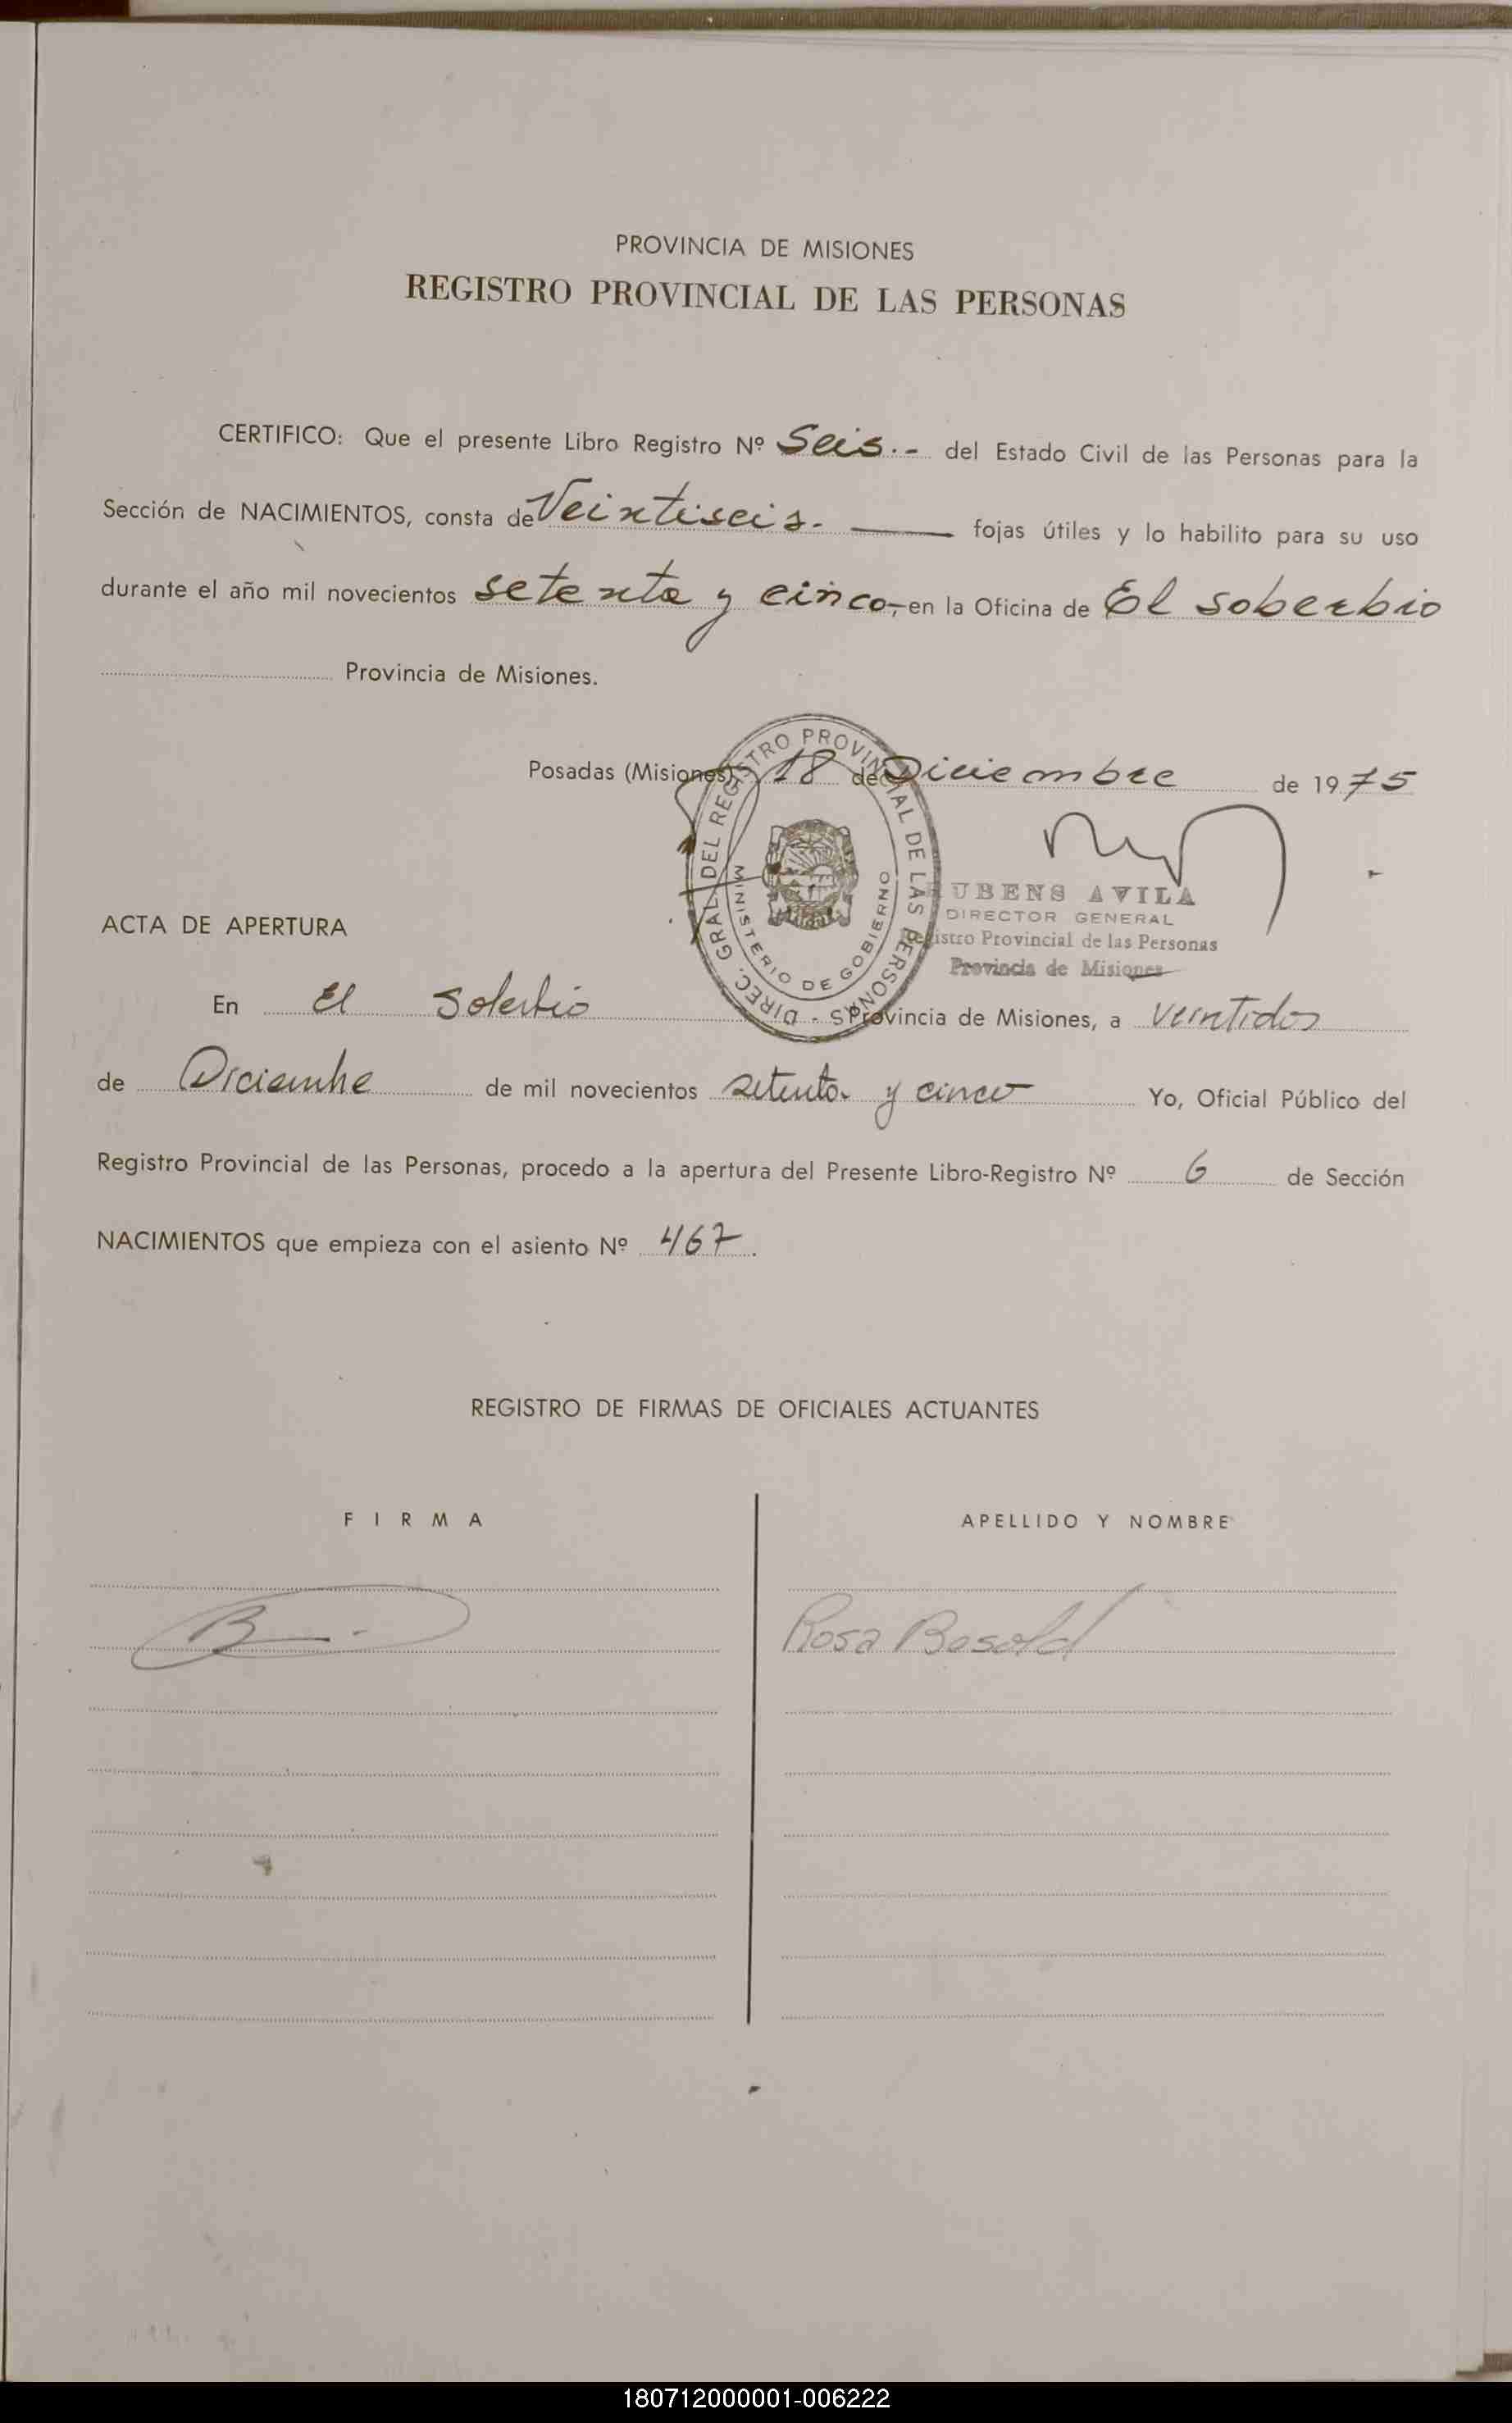 PROVINCIA DE MISIONES
REGISTRO PROVINCIAL DE LAS PERSONAS
CERTIFICO: Que el presente Libro Registro Nº Seis.- del Estado Civil de las Personas para la
Sección de NACIMIENTOS, consta de Veintiseis.- fojas útiles y lo habilito para su uso
durante el año mil novecientos setenta y cinco,- en la Oficina de El soberbio
Provincia de Misiones.
Posadas (Misiones) 18 de Diciembre de 1975
DIREC. GRAL. DEL REGISTRO PROVINCIAL DE LAS PERSONAS -
MINISTERIO DE GOBIERNO
UBENS AVILA
DIRECTOR GENERAL
Registro Provincial de las Personas
Provincia de Misiones
ACTA DE APERTURA
En El Soberbio Provincia de Misiones, a veintidos
de Diciembre de mil novecientos setenta y cinco Yo, Oficial Público del
Registro Provincial de las Personas, procedo a la apertura del Presente Libro-Registro Nº 6 de Sección
NACIMIENTOS que empieza con el asiento Nº 467.
REGISTRO DE FIRMAS DE OFICIALES ACTUANTES
FIRMA APELLIDO Y NOMBRE
Rosa Basold
180712000001-006222